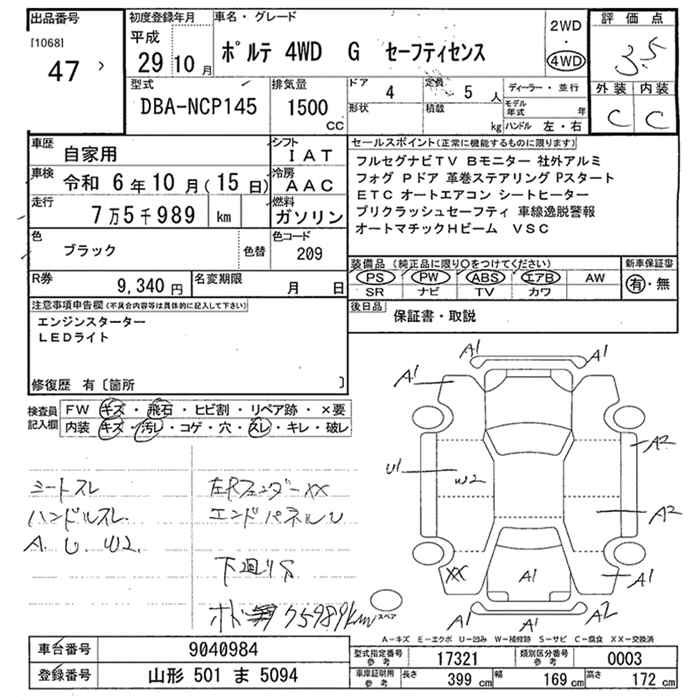 出品番号
[1068]
47
初度登録年月
平成
29年10月
車名・グレード
ポルテ 4WD G セーフティセンス
2WD
・
4WD
評価点
3.5
外装 内装
C C
型式
DBA-NCP145
排気量
1500
CC
ドア
4
定員
5人
形状
積載
kg
ディーラー・並行
モデル年式 年
ハンドル 左・右
車歴
自家用
シフト
IAT
車検
令和 6年10月(15日)
冷房
AAC
走行
7万5千989 km
燃料
ガソリン
色
ブラック
色替
色コード
209
R券
9,340円
名変期限
月 日
セールスポイント(正常に機能するものに限ります)
フルセグナビTV Bモニター 社外アルミ
フォグ Pドア 革巻ステアリング Pスタート
ETC オートエアコン シートヒーター
プリクラッシュセーフティ 車線逸脱警報
オートマチックHビーム VSC
装備品(純正品に限り○をつけてください)
PS PW ABS エアB AW
SR ナビ TV カワ
新車保証書
有・無
後日品
保証書・取説
注意事項申告欄(不具合内容等は具体的に記入して下さい)
エンジンスターター
LEDライト
修復歴 有〔箇所 〕
検査員記入欄
FW キズ・飛石・ヒビ割・リペア跡・×要
内装 キズ・汚レ・コゲ・穴・スレ・キレ・破レ
シートスレ
ハンドルスレ
A. U. W2.
左Rフェンダー XX
エンドパネルU
下廻りS
75989km
A1 A1
A1
A2
U1 W2
A2
XX A1 A1
A1 A1 A2
スペア
A-キズ E-エクボ U-凹み W-補修跡 S-サビ C-腐食 XX-交換済
車台番号
9040984
登録番号
山形 501 ま 5094
型式指定番号
参考
17321
類別区分番号
参考
0003
車庫証明用
参考
長さ 399 cm
幅 169 cm
高さ 172 cm